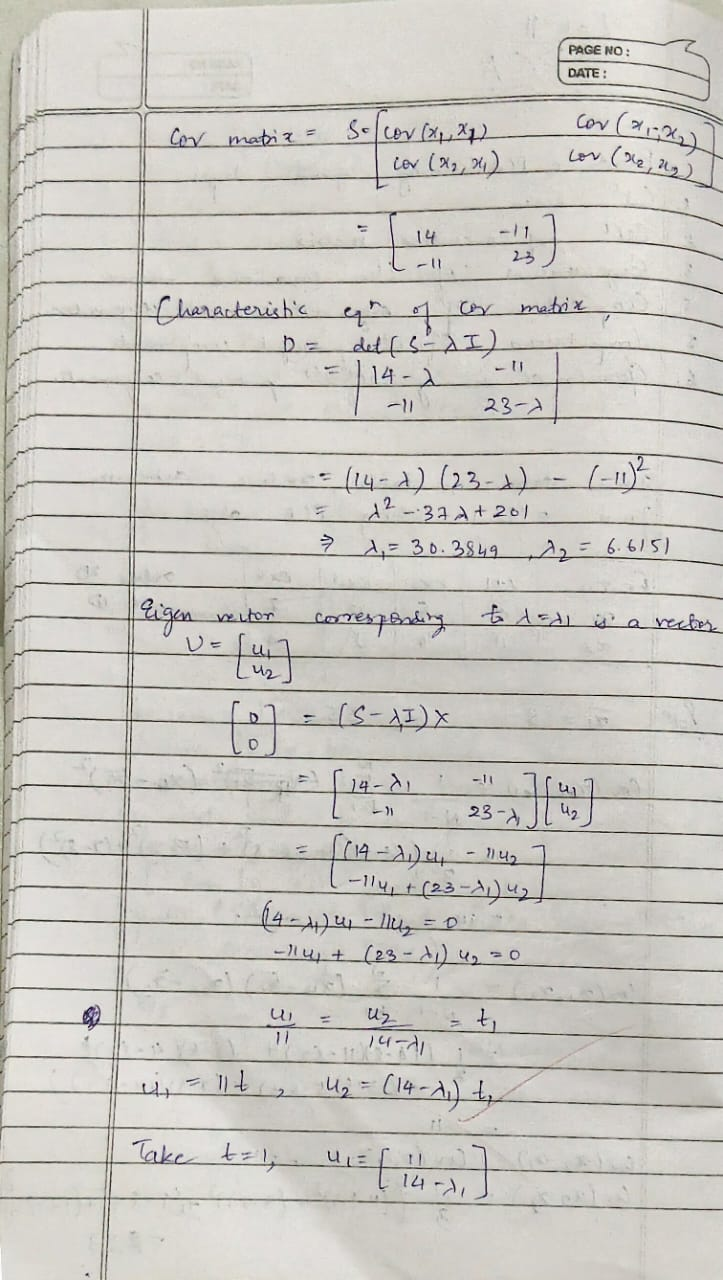 PAGE NO :
DATE :
Cov matrix = S = [cov (x₁, x₁) cov (x₁, x₂)
cov (x₂, x₁) cov (x₂, x₂)]
= [14 -11
-11 23]
Characteristic eqⁿ of cov matrix,
D = det (S - λI)
= |14-λ -11
-11 23-λ|
= (14-λ) (23-λ) - (-11)²
= λ² - 37λ + 201.
⇒ λ₁ = 30.3849, λ₂ = 6.6151
Eigen vector corresponding to λ=λ₁ is a vector
U = [u₁
u₂]
[0
0] = (S-λ₁I) X
= [14-λ₁ -11
-11 23-λ₁] [u₁
u₂]
= [(14-λ₁)u₁ - 11u₂
-11u₁ + (23-λ₁)u₂]
(14-λ₁)u₁ - 11u₂ = 0
-11u₁ + (23-λ₁) u₂ = 0
u₁/11 = u₂/14-λ₁ = t,
u₁ = 11t, u₂ = (14-λ₁) t,
Take t=1, u₁ = [11
14-λ₁]